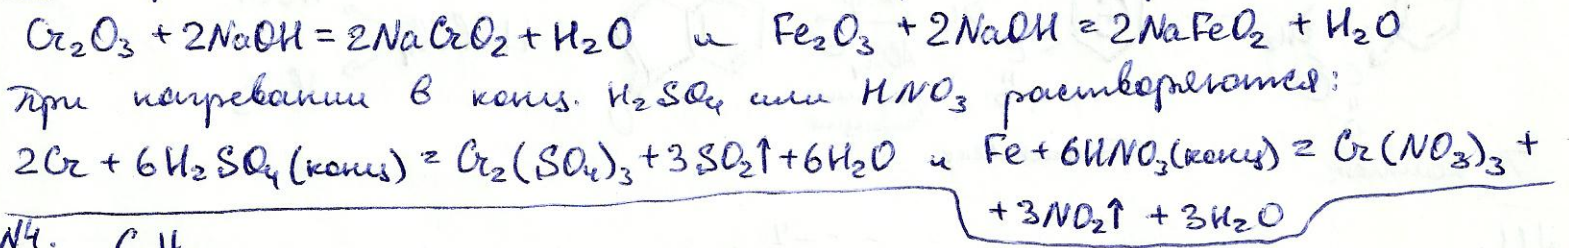 Cr₂O₃ + 2NaOH = 2NaCrO₂ + H₂O и Fe₂O₃ + 2NaOH = 2NaFeO₂ + H₂O
При нагревании в конц. H₂SO₄ или HNO₃ растворяются:
2Cr + 6H₂SO₄(конц) = Cr₂(SO₄)₃ + 3SO₂↑ + 6H₂O и Fe + 6HNO₃(конц) = Cr(NO₃)₃ +
+ 3NO₂↑ + 3H₂O
№4.